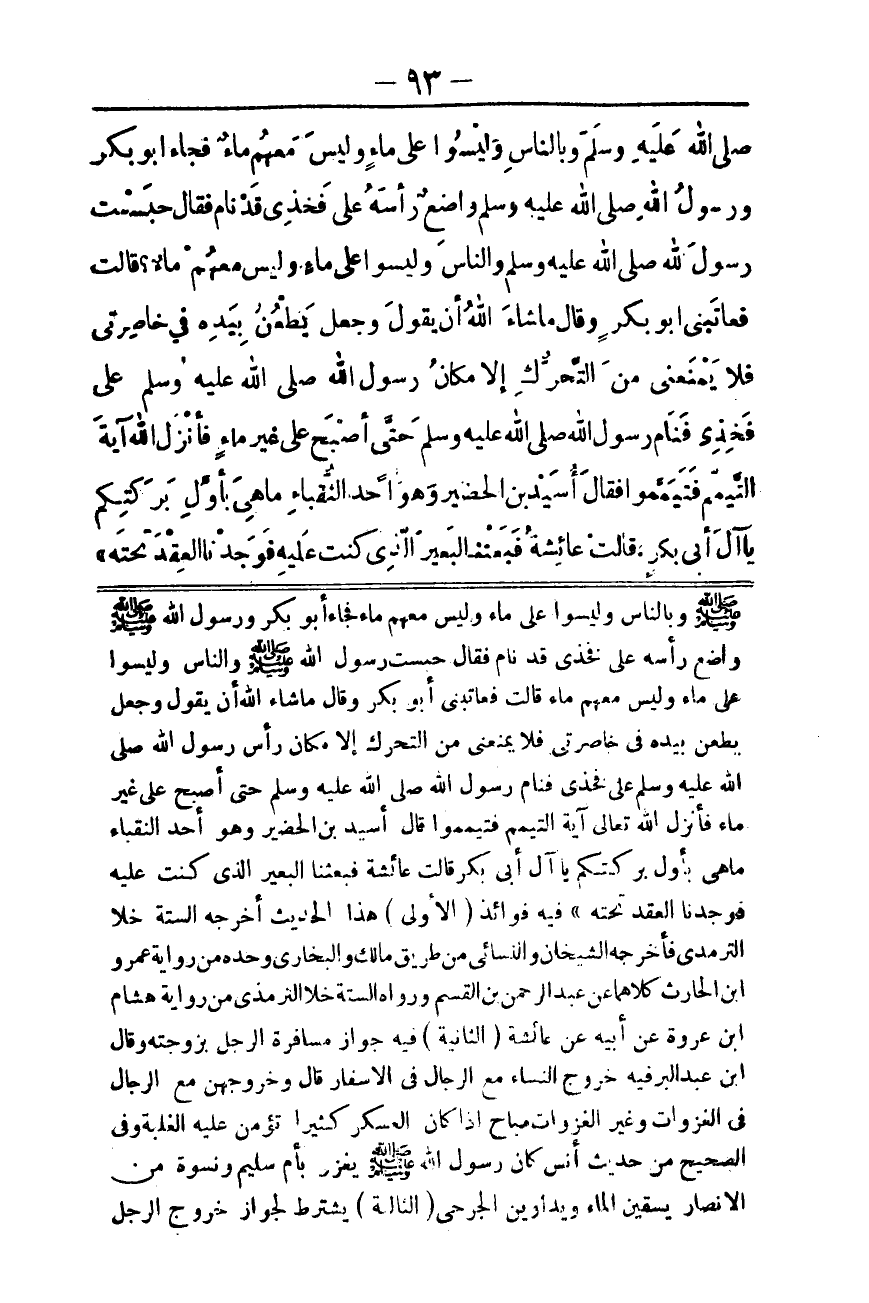 – ٩٣ –
صلى الله عَلَيهِ وسلَّمَ وبالناسِ وَليْسُوا على ماءٍ وليسَ مَعهُم ماءٌ فجاء ابو بكر
ورسولُ اللهِ صلى الله عليه وسلم واضعٌ رأسَهُ على فَخذِى قَدْ نام فقال حبَسْت
رسولَ لله صلى الله عليه وسلم والناسَ وليسوا على ماء. وليس معهُم ماء؟ قالت
فعاتَبنى ابو بكرٍ وقال ماشاءَ اللهُ أن يقولَ وجعل يَطعُنُ بِيَدِه في خاصِرتى
فلا يَمْنَعنى من التَّحرُّكِ إلا مكانُ رسول الله صلى الله عليه وسلم على
فَخِذِى فَنَام رسول الله صلى الله عليه وسلم حَتَّى أصبَح على غير ماءٍ فأنْزل الله آيةَ
التَّيمّمِ فَتَيَمَّموا فقالَ أُسَيْد بن الحضير وَهو أحد النُّقباءِ ماهِىَ بأوَّلِ بَرَكتِكم
يا آلَ أبى بكرٍ، قالتْ عائِشةُ فَبَعَثْنَا البَعيرَ الَّذى كنت عَليهِ فَوَجَدْنا العِقْدَ تحتَه»
ﷺ وبالناس وليسوا على ماء وليس معهم ماء فجاء أبو بكر ورسول الله ﷺ
واضع رأسه على فخذى قد نام فقال حبست رسول الله ﷺ والناس وليسوا
على ماء وليس معهم ماء قالت فعاتبنى أبو بكر وقال ماشاء الله أن يقول وجعل
يطعن بيده فى خاصرتى فلا يمنعنى من التحرك إلا مكان رأس رسول الله صلى
الله عليه وسلم على فخذى فنام رسول الله صلى الله عليه وسلم حتى أصبح على غير
ماء فأنزل الله تعالى آية التيمم فتيمموا قال أسيد بن الحضير وهو أحد النقباء
ماهى بأول بركتكم يا آل أبى بكر قالت عائشة فبعثنا البعير الذى كنت عليه
فوجدنا العقد تحته» فيه فوائد (الأولى) هذا الحديث أخرجه الستة خلا
الترمذى فأخرجه الشيخان والنسائى من طريق مالك والبخارى وحده من رواية عمرو
ابن الحارث كلاهما عن عبد الرحمن بن القسم ورواه الستة خلا الترمذى من رواية هشام
ابن عروة عن أبيه عن عائشة (الثانية) فيه جواز مسافرة الرجل بزوجته وقال
ابن عبد البر فيه خروج النساء مع الرجال فى الاسفار قال وخروجهن مع الرجال
فى الغزوات وغير الغزوات مباح اذا كان العسكر كثيرا تؤمن عليه الغلبة وفى
الصحيح من حديث أنس كان رسول الله ﷺ يغزو بأم سليم ونسوة من
الانصار يسقين الماء ويداوين الجرحى (الثالثة) يشترط لجواز خروج الرجل